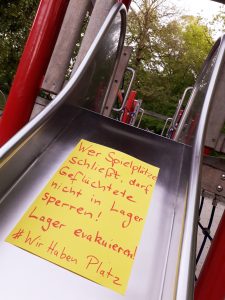 Wer Spielplätze
schließt, darf
Geflüchtete
nicht in Lager
sperren!
Lager evakuieren!
#Wir Haben Platz